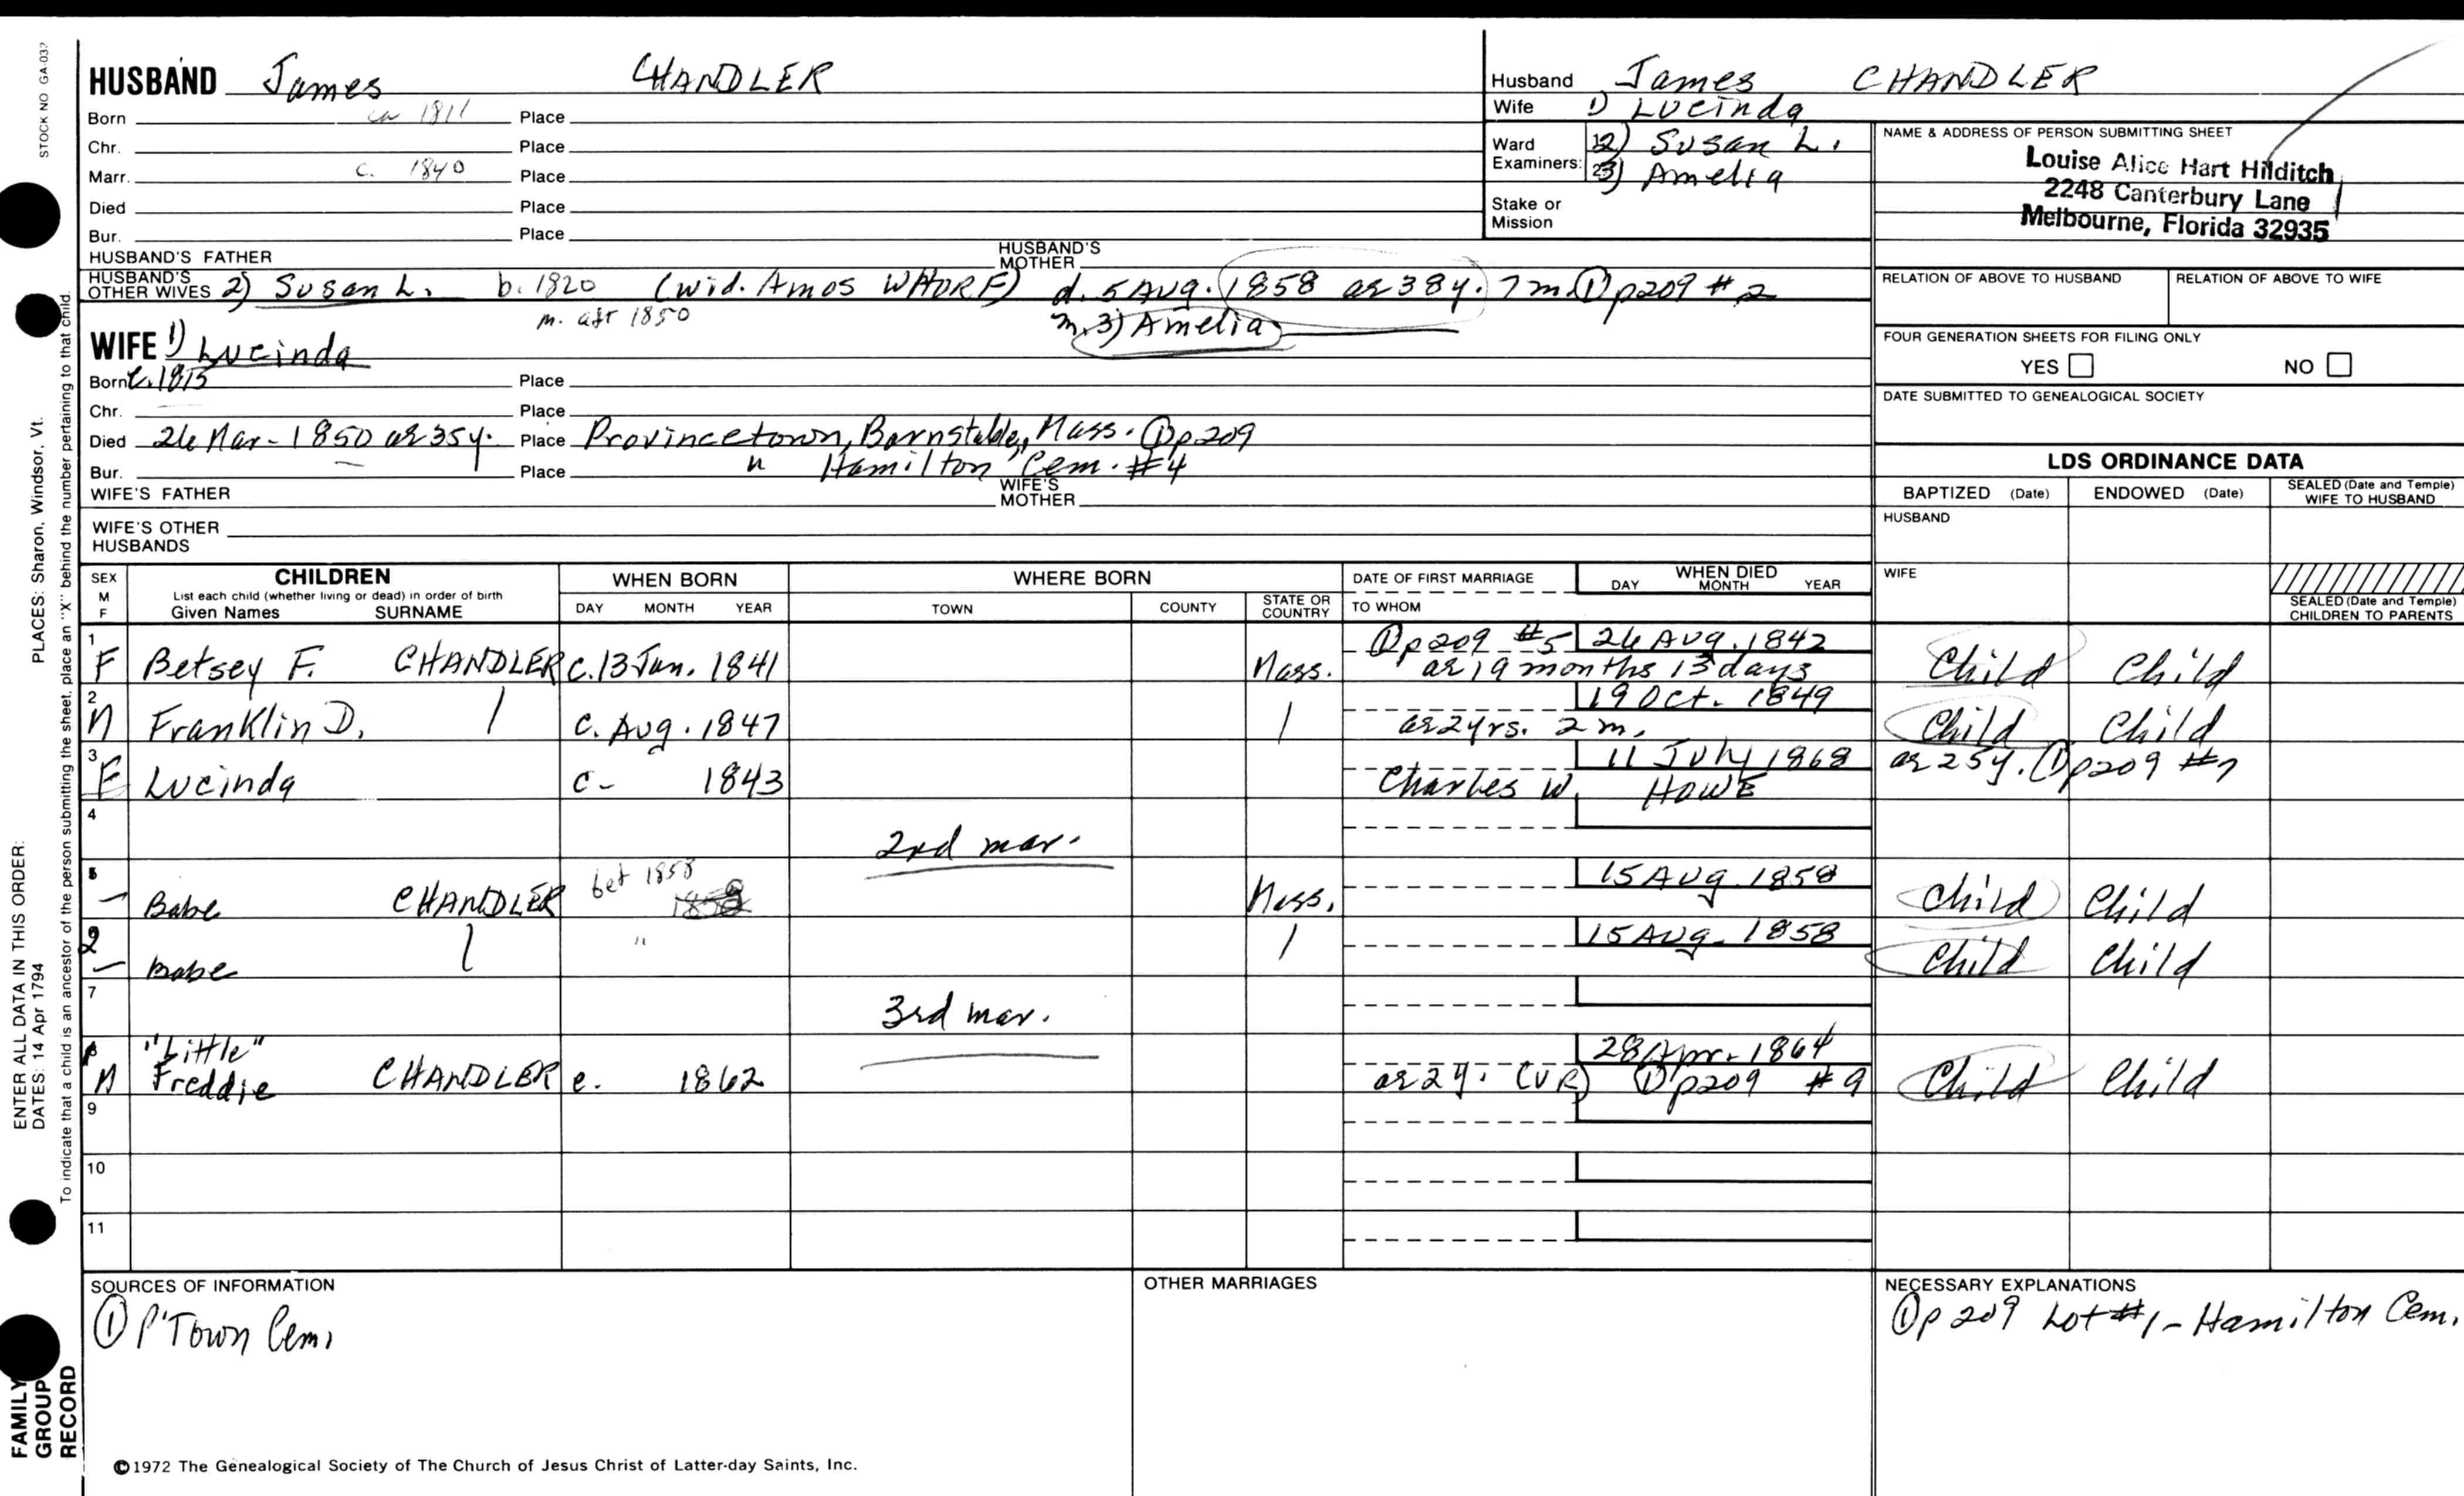 STOCK NO GA-032
HUSBAND James CHANDLER
Born ca 1811 Place
Chr. Place
Marr. c. 1840 Place
Died Place
Bur. Place
HUSBAND'S FATHER HUSBAND'S MOTHER
HUSBAND'S OTHER WIVES 2) Susan L. b. 1820 (wid. Amos WHORF) d. 5 Aug. 1858 ae 38y. 7m. ① p209 #2
m. aft 1850 m. 3) Amelia
WIFE 1) Lucinda
Born c. 1815 Place
Chr. Place
Died 26 Mar - 1850 ae 35y. Place Provincetown, Barnstable, Mass. ① p209
Bur. Place " Hamilton Cem. #4
WIFE'S FATHER WIFE'S MOTHER
WIFE'S OTHER HUSBANDS
Husband James CHANDLER
Wife 1) Lucinda
Ward Examiners: 2) Susan L.
3) Amelia
Stake or Mission
NAME & ADDRESS OF PERSON SUBMITTING SHEET
Louise Alice Hart Hilditch
2248 Canterbury Lane
Melbourne, Florida 32935
RELATION OF ABOVE TO HUSBAND RELATION OF ABOVE TO WIFE
FOUR GENERATION SHEETS FOR FILING ONLY
YES NO
DATE SUBMITTED TO GENEALOGICAL SOCIETY
LDS ORDINANCE DATA
BAPTIZED (Date) ENDOWED (Date) SEALED (Date and Temple) WIFE TO HUSBAND
HUSBAND
WIFE
SEALED (Date and Temple) CHILDREN TO PARENTS
SEX M F
CHILDREN
List each child (whether living or dead) in order of birth
Given Names SURNAME
WHEN BORN
DAY MONTH YEAR
WHERE BORN
TOWN COUNTY STATE OR COUNTRY
DATE OF FIRST MARRIAGE
TO WHOM
WHEN DIED
DAY MONTH YEAR
1 ① p209 #5 26 Aug. 1842
F Betsey F. CHANDLER c. 13 Jan. 1841 Mass. ae 19 months 13 days Child Child
2 19 Oct. 1849
M Franklin D. c. Aug. 1847 ae 2yrs. 2m. Child Child
3 11 July 1868 ae 25y. ① p209 #7
F Lucinda c - 1843 Charles W. HOWE
4
2nd mar.
bet 1858 15 Aug. 1858
Babe CHANDLER Mass. Child Child
" 15 Aug. 1858
Babe Child Child
7
3rd mar.
"Little" 28 Apr. 1864
M Freddie CHANDLER c. 1862 ae 2y. (VR) ① p209 #9 Child Child
9
10
11
SOURCES OF INFORMATION
① P'Town Cem.
OTHER MARRIAGES
NECESSARY EXPLANATIONS
① p 209 Lot #1 - Hamilton Cem.
©1972 The Genealogical Society of The Church of Jesus Christ of Latter-day Saints, Inc.
ENTER ALL DATA IN THIS ORDER:
DATES: 14 Apr 1794 PLACES: Sharon, Windsor, Vt.
To indicate that a child is an ancestor of the person submitting the sheet, place an "X" behind the number pertaining to that child.
FAMILY
GROUP
RECORD